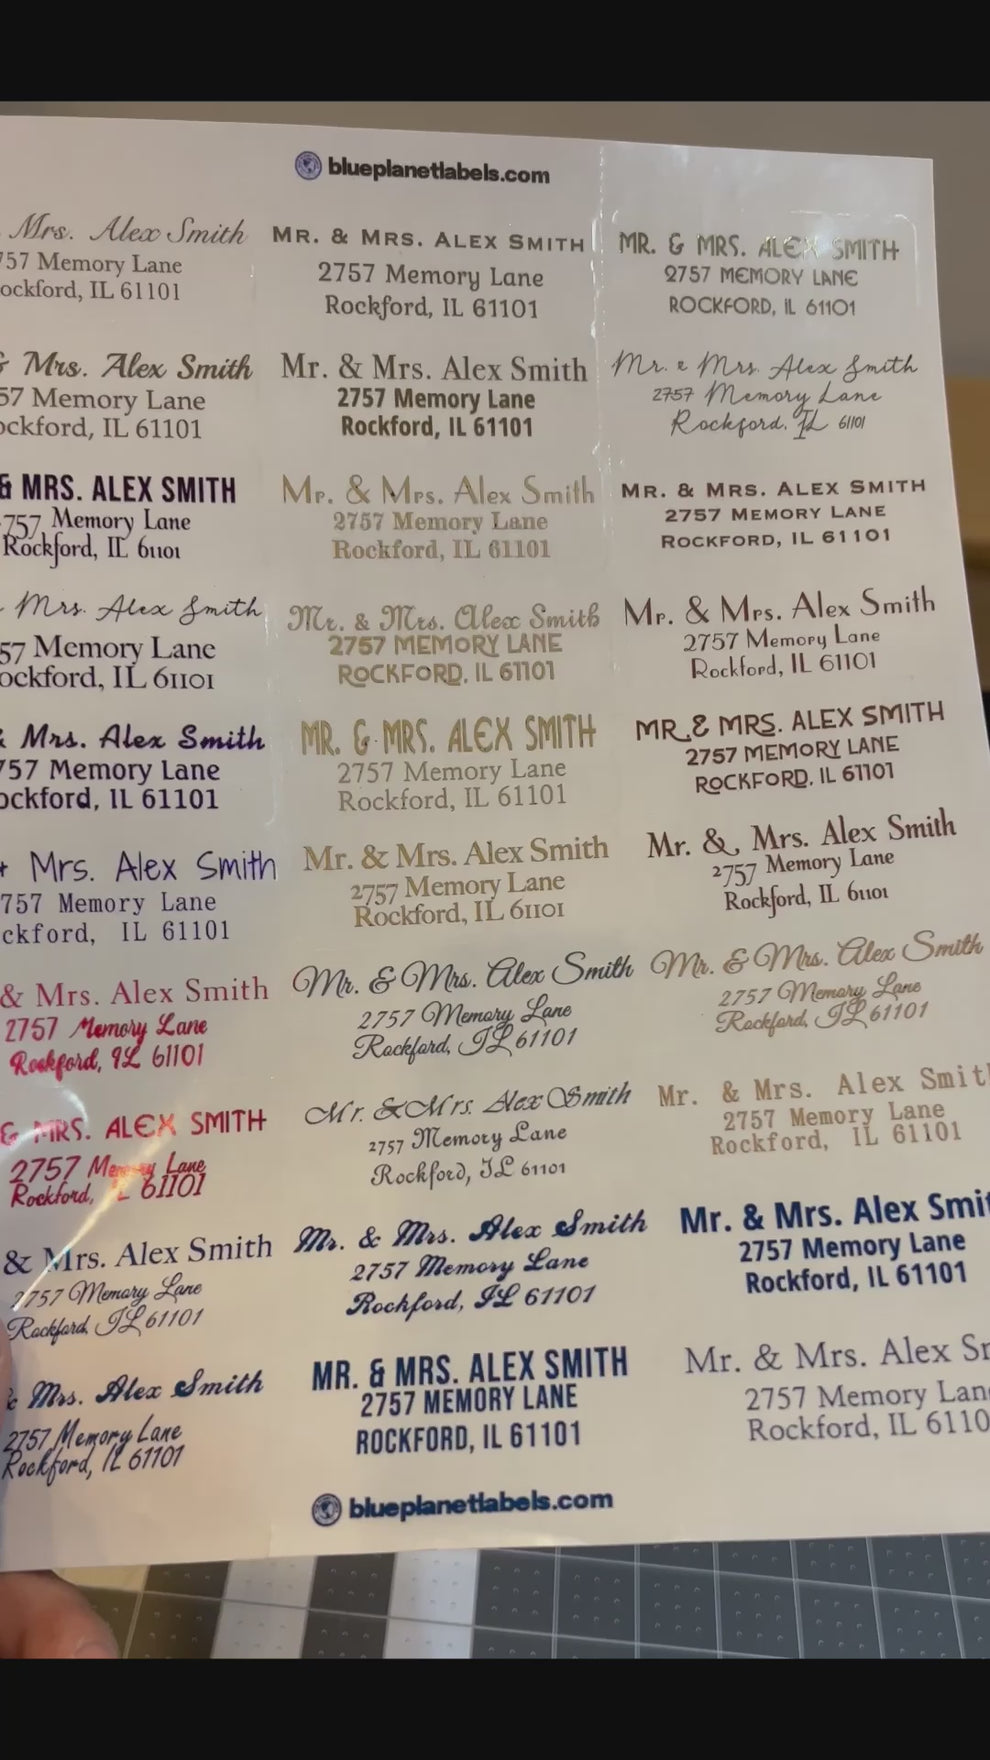 blueplanetlabels.com
Mrs. Alex Smith
757 Memory Lane
ockford, IL 61101
MR. & MRS. ALEX SMITH
2757 Memory Lane
Rockford, IL 61101
MR. & MRS. ALEX SMITH
2757 MEMORY LANE
ROCKFORD, IL 61101
& Mrs. Alex Smith
57 Memory Lane
ockford, IL 61101
Mr. & Mrs. Alex Smith
2757 Memory Lane
Rockford, IL 61101
Mr. & Mrs. Alex Smith
2757 Memory Lane
Rockford, IL 61101
& MRS. ALEX SMITH
757 Memory Lane
Rockford, IL 61101
Mr. & Mrs. Alex Smith
2757 Memory Lane
Rockford, IL 61101
MR. & MRS. ALEX SMITH
2757 MEMORY LANE
ROCKFORD, IL 61101
Mrs. Alex Smith
57 Memory Lane
ockford, IL 61101
Mr. & Mrs. Alex Smith
2757 MEMORY LANE
ROCKFORD, IL 61101
Mr. & Mrs. Alex Smith
2757 Memory Lane
Rockford, IL 61101
& Mrs. Alex Smith
757 Memory Lane
ockford, IL 61101
MR. & MRS. ALEX SMITH
2757 Memory Lane
Rockford, IL 61101
MR. & MRS. ALEX SMITH
2757 MEMORY LANE
ROCKFORD, IL 61101
+ Mrs. Alex Smith
757 Memory Lane
ckford, IL 61101
Mr. & Mrs. Alex Smith
2757 Memory Lane
Rockford, IL 61101
Mr. & Mrs. Alex Smith
2757 Memory Lane
Rockford, IL 61101
& Mrs. Alex Smith
2757 Memory Lane
Rockford, IL 61101
Mr. & Mrs. Alex Smith
2757 Memory Lane
Rockford, IL 61101
Mr. & Mrs. Alex Smith
2757 Memory Lane
Rockford, IL 61101
& MRS. ALEX SMITH
2757 Memory Lane
Rockford, IL 61101
Mr. & Mrs. Alex Smith
2757 Memory Lane
Rockford, IL 61101
Mr. & Mrs. Alex Smit
2757 Memory Lane
Rockford, IL 61101
& Mrs. Alex Smith
2757 Memory Lane
Rockford, IL 61101
Mr. & Mrs. Alex Smith
2757 Memory Lane
Rockford, IL 61101
Mr. & Mrs. Alex Smit
2757 Memory Lane
Rockford, IL 61101
& Mrs. Alex Smith
2757 Memory Lane
Rockford, IL 61101
MR. & MRS. ALEX SMITH
2757 MEMORY LANE
ROCKFORD, IL 61101
Mr. & Mrs. Alex Sm
2757 Memory Lan
Rockford, IL 6110
blueplanetlabels.com